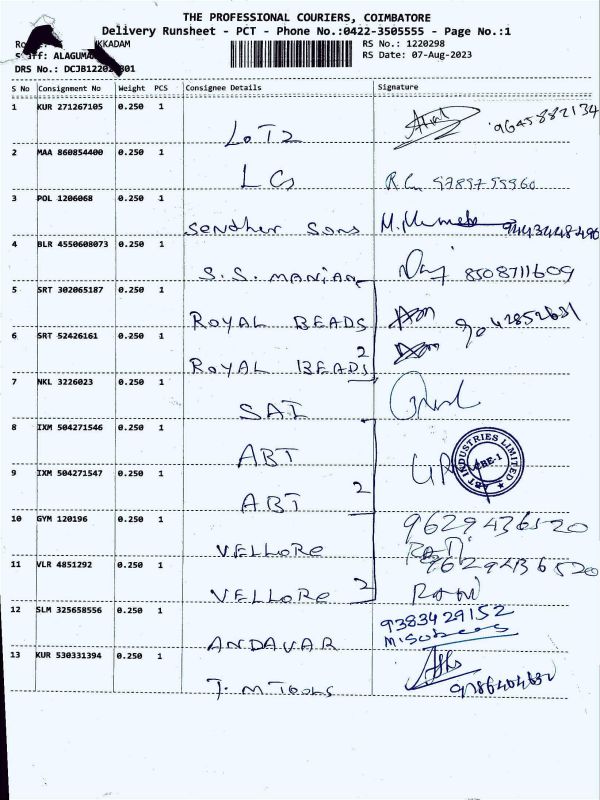 THE PROFESSIONAL COURIERS, COIMBATORE
Delivery Runsheet - PCT - Phone No.:0422-3505555 - Page No.:1
KKADAM RS No.: 1220298
RS Date: 07-Aug-2023
DRS No.:
S No Consignment No Weight PCS Consignee Details Signature
1 KUR 271267105 0.250 1
9645882134
2 MAA 860854400 0.250 1
LCS
3 POL 1206068 0.250 1
Sendhur Sons
4 BLR 4550608073 0.250 1
S.S. MANIAN 8508711609
5 SRT 302065187 0.250 1
ROYAL BEADS
6 SRT 52426161 0.250 1
ROYAL BEADS 2
7 NKL 3226023 0.250 1
SAI
8 IXM 504271546 0.250 1
ABT
ABT INDUSTRIES LIMITED
CBE-1
9 IXM 504271547 0.250 1
ABT 2
10 GYM 120196 0.250 1
VELLORE 9629436520
11 VLR 4851292 0.250 1
9629436520
VELLORE 2
12 SLM 325658556 0.250 1
9383429152
ANDAVAR
13 KUR 530331394 0.250 1
J. M Tools